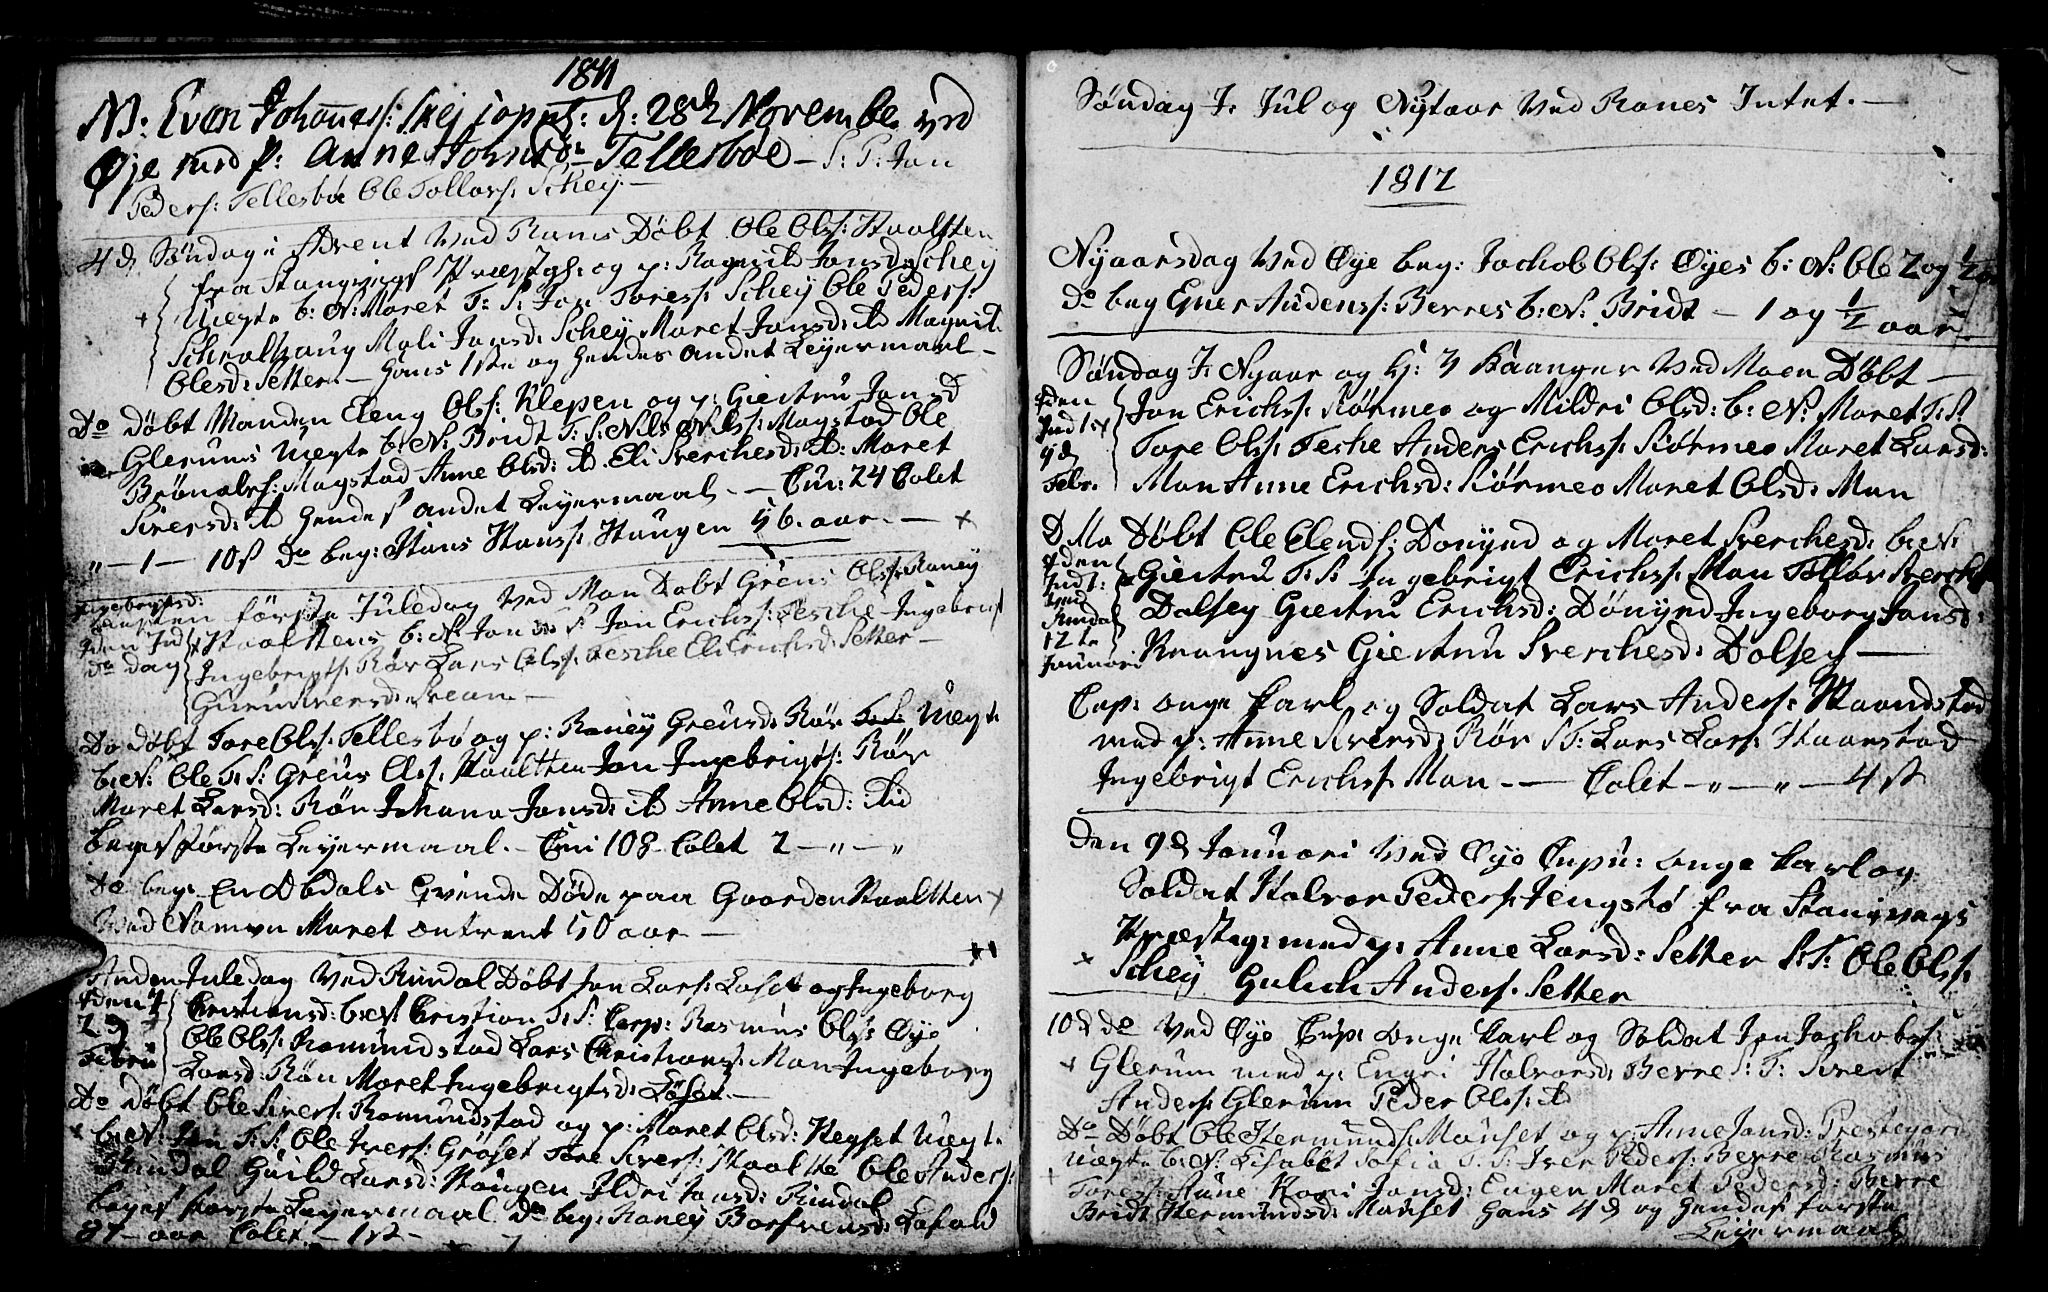 1811
N: Even Johannes: Skej copul: d: 28d November ved
Øje med p: Anne Johnsd: Tellesboe – S: T: Jon
Peders: Tellesbøe Ole Tollevs: Schey. –
4d Søndag i Advent Ved Ranes Døbt Ole Ols: Haaltten
fra Stangvigs Præstgh: og p: Ragnild Jonsd Schey
Uægte b: N: Maret T: S: Jon Tores: Schey Ole Peders:
Schraltzaug Mali Jonsd: Schey Maret Jonsd: it Magnil
Olesd: Setter. – Hans 1ste og Hendes andet Leyermaal –
Do døbt Manden Eleng Ols: Klepen og p: Giertru Jonsd
Glerums Uægte b: N: Bridt T: S: Nils Nils: Magstad Ole
Brønals: Magstad Anne Olsd: it. Eli Sverchesd: it: Maret
Siversd: it Hendes andet Leyermaal. – Cui: 24 Colet
" – 1 – 10 s do beg: Hans Hans: Haugen 56. aar. – x
Ingebrigtsd:
første Juledag Ved Moen Døbt Greus Ols: Raney
Inden Ind Haalttens b: N: Jon T: S: Jon Erichs: Tesche Ingebrigt
do dag Ingebrigts: Rør Lars Ols: Tesche Eli Erichsd: Setter –
Guru Iversd: Svean. –
Do døbt Tore Ols: Tellesbø og p: Raney Greusd: Rør Uægte
b: N: Ole T: S: Greus Ols: Haaltten Jon Ingebrigts: Rør
Maret Larsd: Røn Johana Jonsd: it Anne Olsd: itid
beges første Leyermaal. – Cui 108 Colet 2 – " – "
Do beg: En Opdals Qvinde Døde paa Gaarden Haaltten x
Ved Namn Maret ontrent 50 aar –
Anden Juledag Ved Rindal Døbt Jon Lars: Løset og Ingeborg
Christiansd: b: N: Cristian T: S: Corp: Rasmus Ols: Øye
Ole Ols: Romundstad Lars Christians: Moen Ingeborg
Larsd: Røn Maret Ingebrigtsd: Løset –
Do døbt Ole Sivers: Romundstad og p: Maret Olsd: Hegset Uægte
b: N: Jon T: S: Ole Ivers: Grøset Tore Sivers: Haaltte Ole Anders:
Rindal Guild Larsd: Haugen Ildri Jonsd: Rindal
beges første Leyermaal. Do beg: Raney Borfrensd: Lofald
87 – aar Colet – 1 s –
Søndag f: Jul og Nytaar Ved Ranes Intet. –
1812
Nyaarsdag Ved Øye beg: Jachob Ols: Øyes b: N: Ole 2 og 1/2 aar
Do beg Ener Audens: Berres b: N: Bridt – 1 og 1/2 aar
Søndag f: Nyaar og H: 3 Kaanger Ved Moen Døbt –
Jon Erichs: Kørmeo og Mildri Olsd: b: N: Maret T: S:
Tore Ols: Tesche Anders Erichs: Kiørmeo Maret Larsd:
Moen Anne Erichsd: Kiørmeo Maret Olsd: Moen
9d
Febr.
D Mo Døbt Ole Elends: Dønjed og Maret Sverchesd: b: N:
Giertru T: S: Ingebrigt Erichs: Moen Tollev Sverchs:
Dalsey Giertru Erichsd: Dønjed Ingeborg Jonsd:
Kraagnes Giertru Sverchesd: Dalsey –
Rindal
12te
Januari
Cup: unge Karl og Soldat Lars Anders: Haandstad
med p: Anne Siversd: Rør S T: Lars Lars: Haarstad
Ingebrigt Erichs: Moen – – Colet – " – " – 4 s
den 9d Januari Ved Øye Cupu: unge Karl og
Soldat Halvor Peders: Tengstø fra Stangvigs
Præsteg: med p: Anne Larsd: Setter S: T: Ole Ols:
x Schey Gulich Anders: Setter
10d do Ved Øye Cup: unge Karl og Soldat Jon Jachobs:
x Glerum med p: Engri Halvorsd: Berre S: T: Sivert
Anders: Glerum Peder Ols: it
Do Døbt Ole Hermunds: Monset og p: Anne Jonsd: Prestegard
Uægte b: N: Lisabet Sofia T: S: Iver Peders: Berre Rasmus
Tores: Aune Kari Jonsd: Engen Maret Pedersd: Berre
Bridt Hermundsd: Monset Hans 4d og Hendes første
Leyermaal